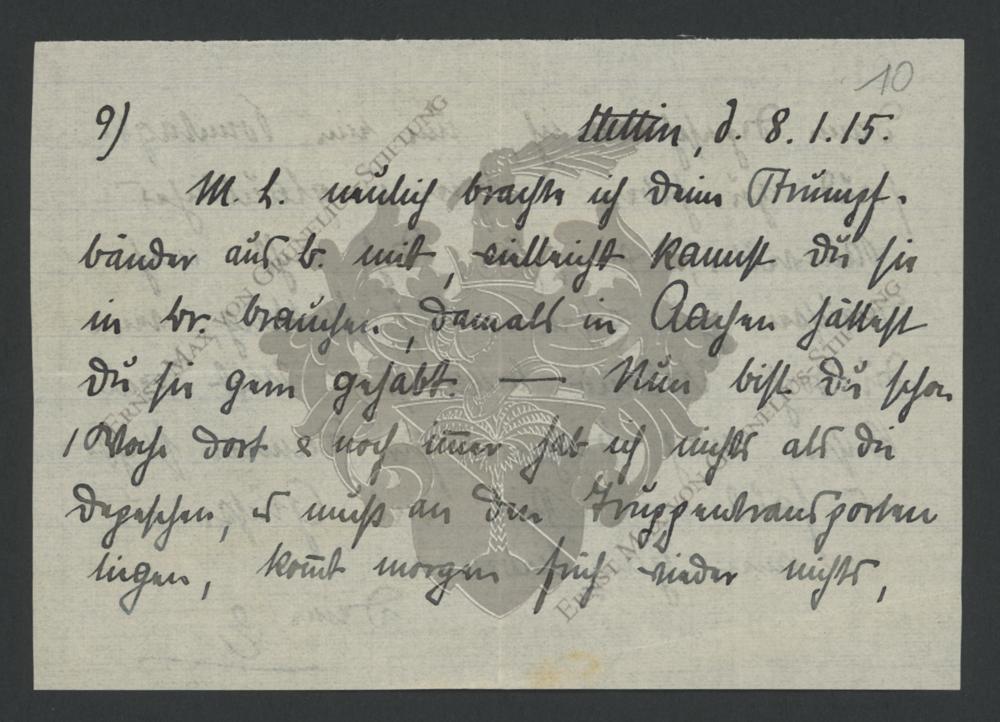 10
9) Stettin, d. 8.1.15.
M. L. neulich brachte ich deine Strumpf-
bänder aus B. mit, vielleicht kannst du sie
in Br. brauchen, damals in Aachen hättest
du sie gern gehabt. — Nun bist du schon
1 Woche dort & noch immer hab ich nichts als die
Depeschen, es muß an den Truppentransporten
liegen, kommt morgen früh wieder nichts,
Ernst Max von Grunelius-Stiftung
Ernst Max von Grunelius-Stiftung